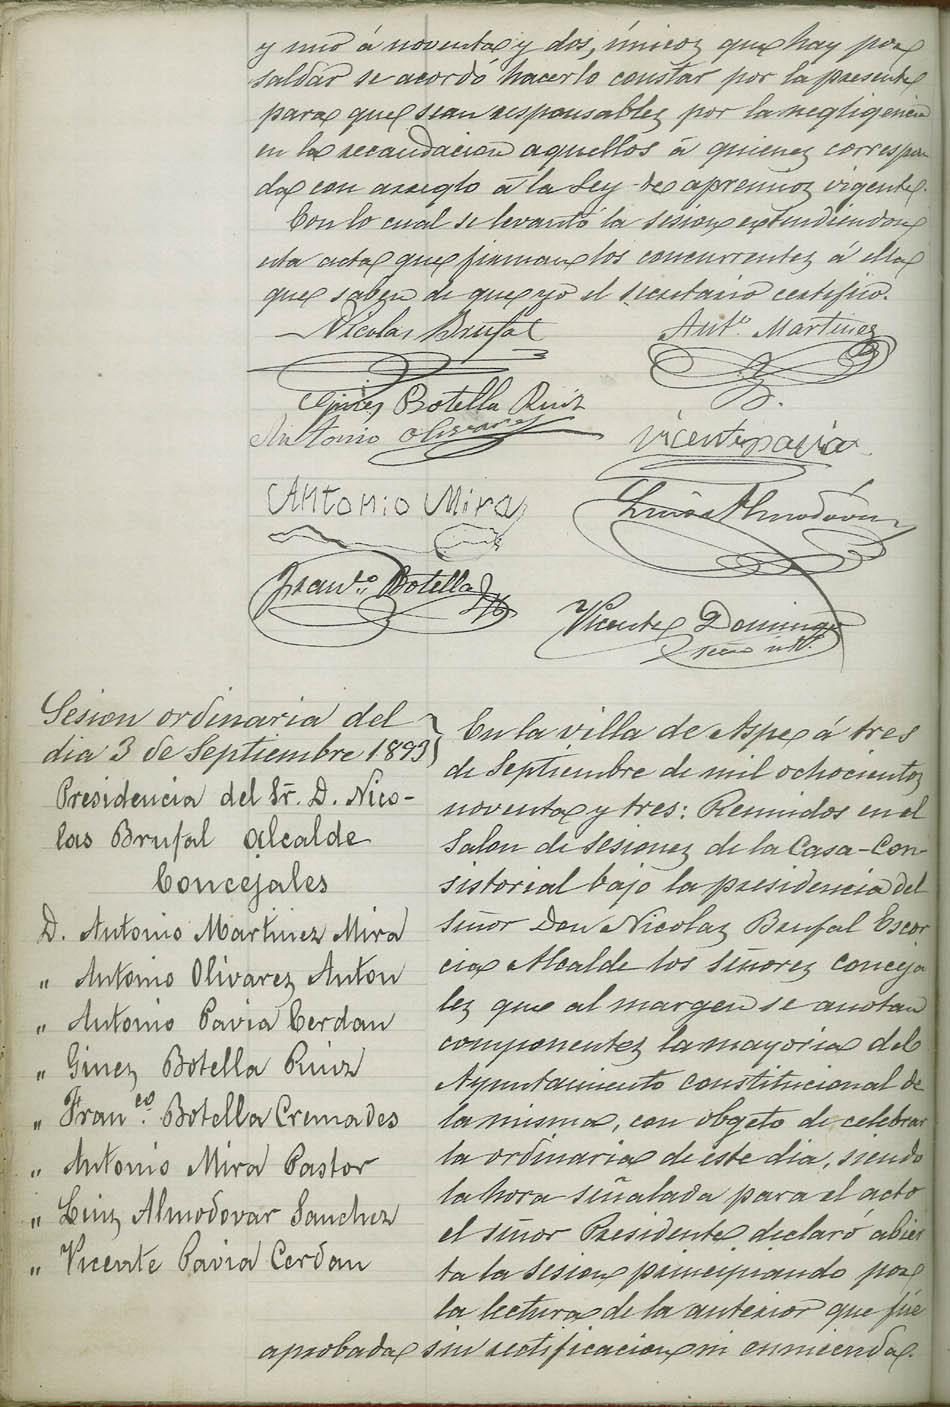 y uno á noventa y dos, únicos que hay por
saldar se acordó hacerlo constar por la presente
para que sean responsables por la negligencia
en la recaudacion aquellos á quienes correspon
da con arreglo á la Ley de apremios vigente.
Con lo cual se levantó la sesion extendiendose
esta acta que firman los concurrentes á ella
que saben de que yo el secretario certifico.
Nicolas Brufal
Ant.º Martinez
Gines Botella Ruiz
Antonio Olivares
Vicente pavia
Antonio Mira
Luis Almodóvar
Fran.co Botella
Vicente Domingo
Srio int.º
Sesion ordinaria del
dia 3 de Septiembre 1893
Presidencia del Sr. D. Nico-
las Brufal alcalde
Concejales
D. Antonio Martinez Mira
" Antonio Olivarez Anton
" Antonio Pavia Cerdan
" Ginez Botella Ruiz
" Fran.co Botella Cremades
" Antonio Mira Pastor
" Luiz Almodovar Sanchez
" Vicente Pavia Cerdan
En la villa de Aspe á tres
de Septiembre de mil ochocientos
noventa y tres: Reunidos en el
Salon de sesiones de la Casa-Con-
sistorial bajo la presidencia del
señor Don Nicolas Brufal Escor
cia Alcalde los señores conceja
les que al margen se anotan
componentes la mayoria del
Ayuntamiento constitucional de
la misma, con obgeto de celebrar
la ordinaria de este dia, siendo
la hora señalada para el acto
el señor Presidente declaró abier
ta la sesion principiando por
la lectura de la anterior que fue
aprobada sin rectificacion ni enmienda.